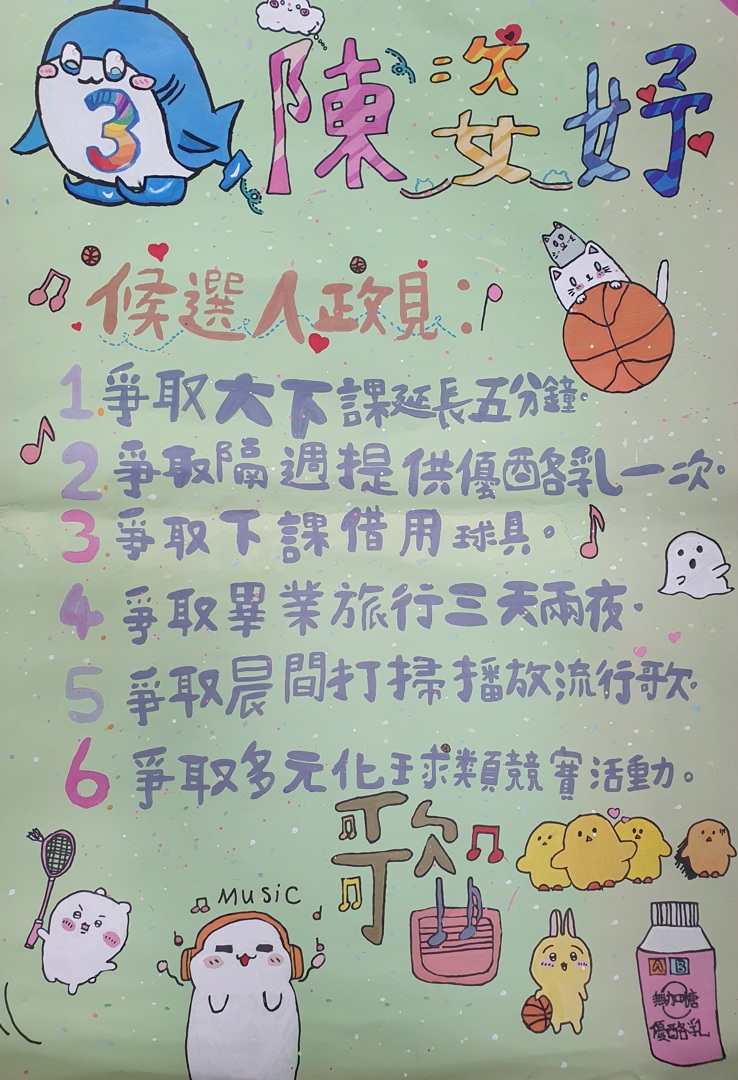 3 陳姿妤
候選人政見：
1.爭取大下課延長五分鐘。
2.爭取隔週提供優酪乳一次。
3.爭取下課借用球具。
4.爭取畢業旅行三天兩夜。
5.爭取晨間打掃播放流行歌。
6.爭取多元化球類競賽活動。
歌
MUSIC
AB
無加糖
優酪乳